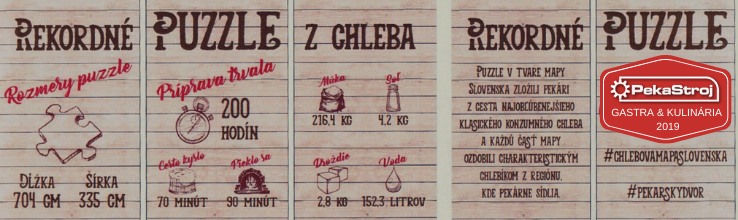 REKORDNÉ PUZZLE Z CHLEBA
Rozmery puzzle
DĹŽKA
704 CM
ŠÍRKA
335 CM
Príprava trvala
200
HODÍN
Cesto kyslo
70 MINÚT
Pieklo sa
90 MINÚT
Múka
216,4 KG
Soľ
4,2 KG
Droždie
2,8 KG
Voda
152,3 LITROV
REKORDNÉ PUZZLE
PUZZLE V TVARE MAPY
SLOVENSKA ZLOŽILI PEKÁRI
Z CESTA NAJOBĽÚBENEJŠIEHO
KLASICKÉHO KONZUMNÉHO CHLEBA
A KAŽDÚ ČASŤ MAPY
OZDOBILI CHARAKTERISTICKÝM
CHLEBÍKOM Z REGIÓNU,
KDE PEKÁRNE SÍDLIA.
PekaStroj
GASTRA & KULINÁRIA
2019
#CHLEBOVAMAPASLOVENSKA
#PEKARSKYDVOR